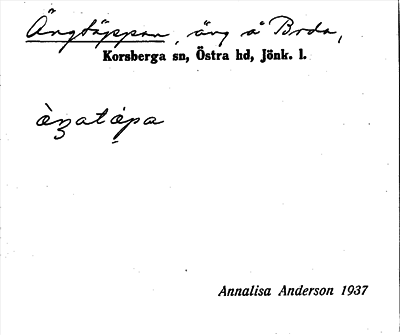 Ängtäppan, äng å Broda,
Korsberga sn, Östra hd, Jönk. l.
Annalisa Anderson 1937